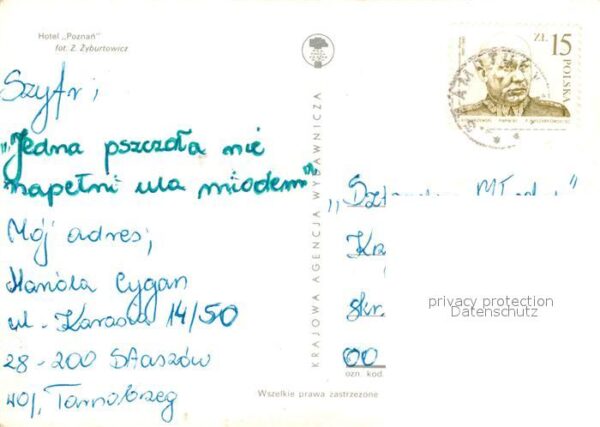 Hotel „Poznań"
fot. Z. Żyburtowicz
Szyfr;
„Jedna pszczoła nie
napełni ula miodem"
Mój adres;
Mariola Cygan
ul.
14/50
28-200 Staszów
woj. Tarnobrzeg
KRAJOWA AGENCJA WYDAWNICZA
Wszelkie prawa zastrzeżone
ZŁ 15
POLSKA
„Sztandar Mł
skr.
00
ozn. kod.
privacy protection
Datenschutz